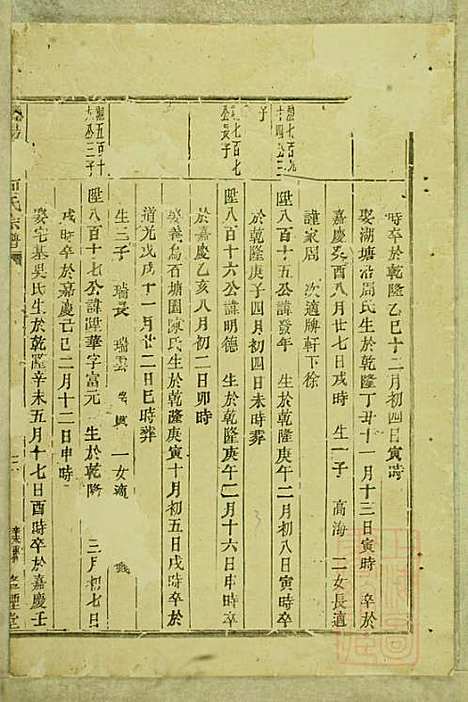 時卒於乾隆乙巳十二月初四日寅時
娶湖塘沿周氏生於乾隆丁丑十一月十三日寅時 卒於
嘉慶癸酉八月廿七日戌時 生一子 高海 二女長適
諱家周 次適牌軒下徐
陞七百九十四公三子
陞八百十五公諱發年 生於乾隆庚午二月初八日寅時卒
於乾隆庚子四月初四日未時葬
陞七百七公長子
陞八百十六公諱明德 生於乾隆庚午二月十六日申時卒
於嘉慶乙亥八月初二日卯時
娶義烏百塘園陳氏生於乾隆庚寅十月初五日戌時卒於
道光戊戌十一月廿二日巳時葬
生三子 瑞長 瑞雲 興 一女適
五百十六公三子
陞八百十七公諱躍華字富元 生於乾隆 三月初七日
戌時卒於嘉慶己巳二月十二日申時
娶宅基吳氏生於乾隆辛未五月十七日酉時卒於嘉慶壬
何氏宗譜